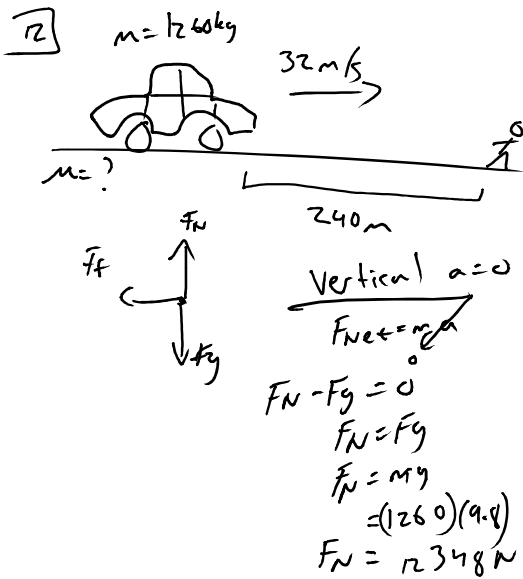 12
m=1260kg
32m/s
μ=?
240m
FN
Ff
Fg
Vertical a=0
FNet=ma
0
FN-Fg=0
FN=Fg
FN=mg
=(1260)(9.8)
FN=12348N